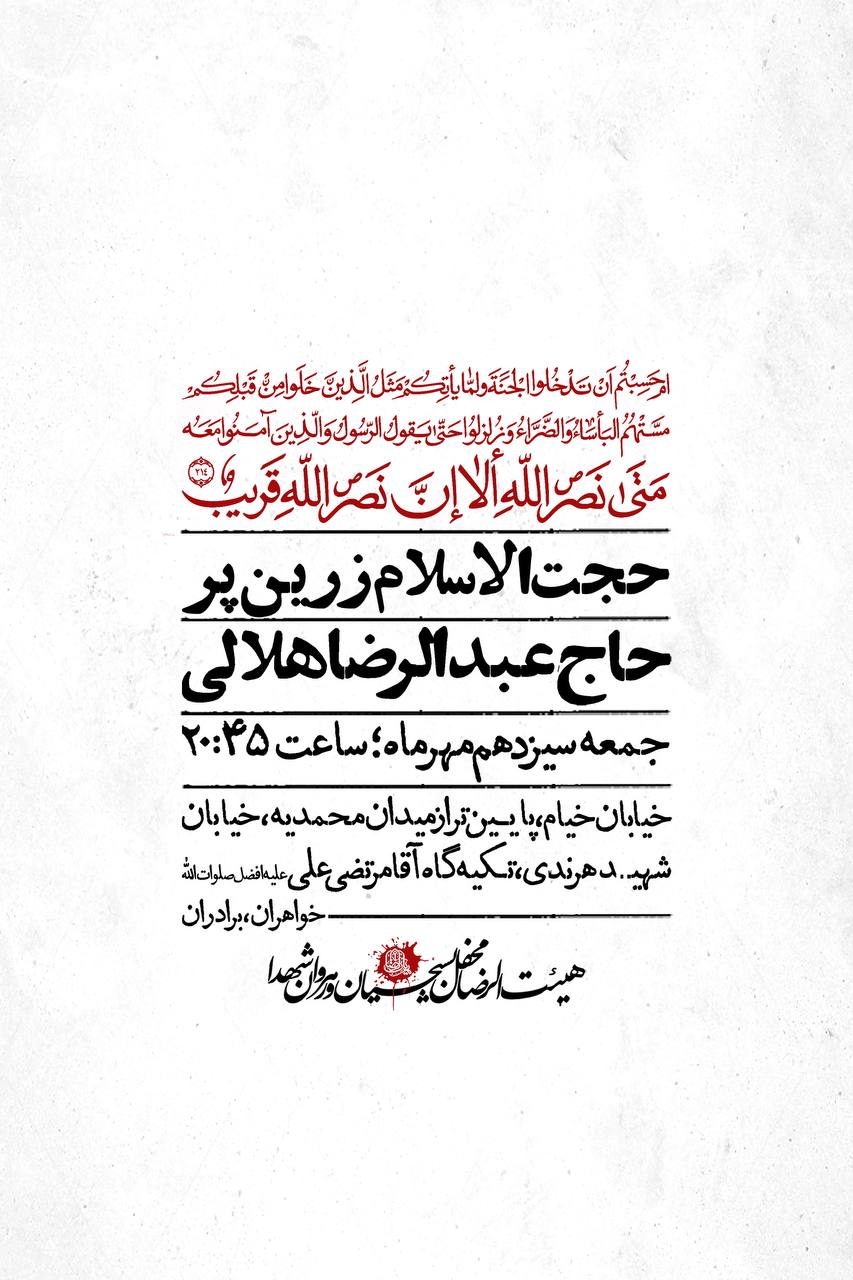 ام حَسِبْتُم اَنْ تَدْخُلُوا الْجَنَّةَ ولمّا يأتِكُمْ مَثَلُ الَّذِينَ خَلَوا مِنْ قَبْلِكُم
مسَّتْهُمُ البَأساءُ وَالضَّرَّاءُ وَزُلزِلُوا حَتّى يَقولَ الرّسُولُ وَالَّذِينَ آمَنُوا مَعَه
مَتَىٰ نَصرُ اللّهِ أَلا إِنَّ نَصرَ اللّهِ قَرِيبٌ ٢١٤
حجت الاسلام زرین پر
حاج عبدالرضا هلالی
جمعه سیزدهم مهرماه؛ ساعت ۲۰:۴۵
خیابان خیام، پایین تر از میدان محمدیه، خیابان
شهید دهرندی، تکیه گاه آقا مرتضی علی علیه افضل صلوات الله
خواهران، برادران
هیئت الرضا محفل بسیجیان و رهروان شهدا